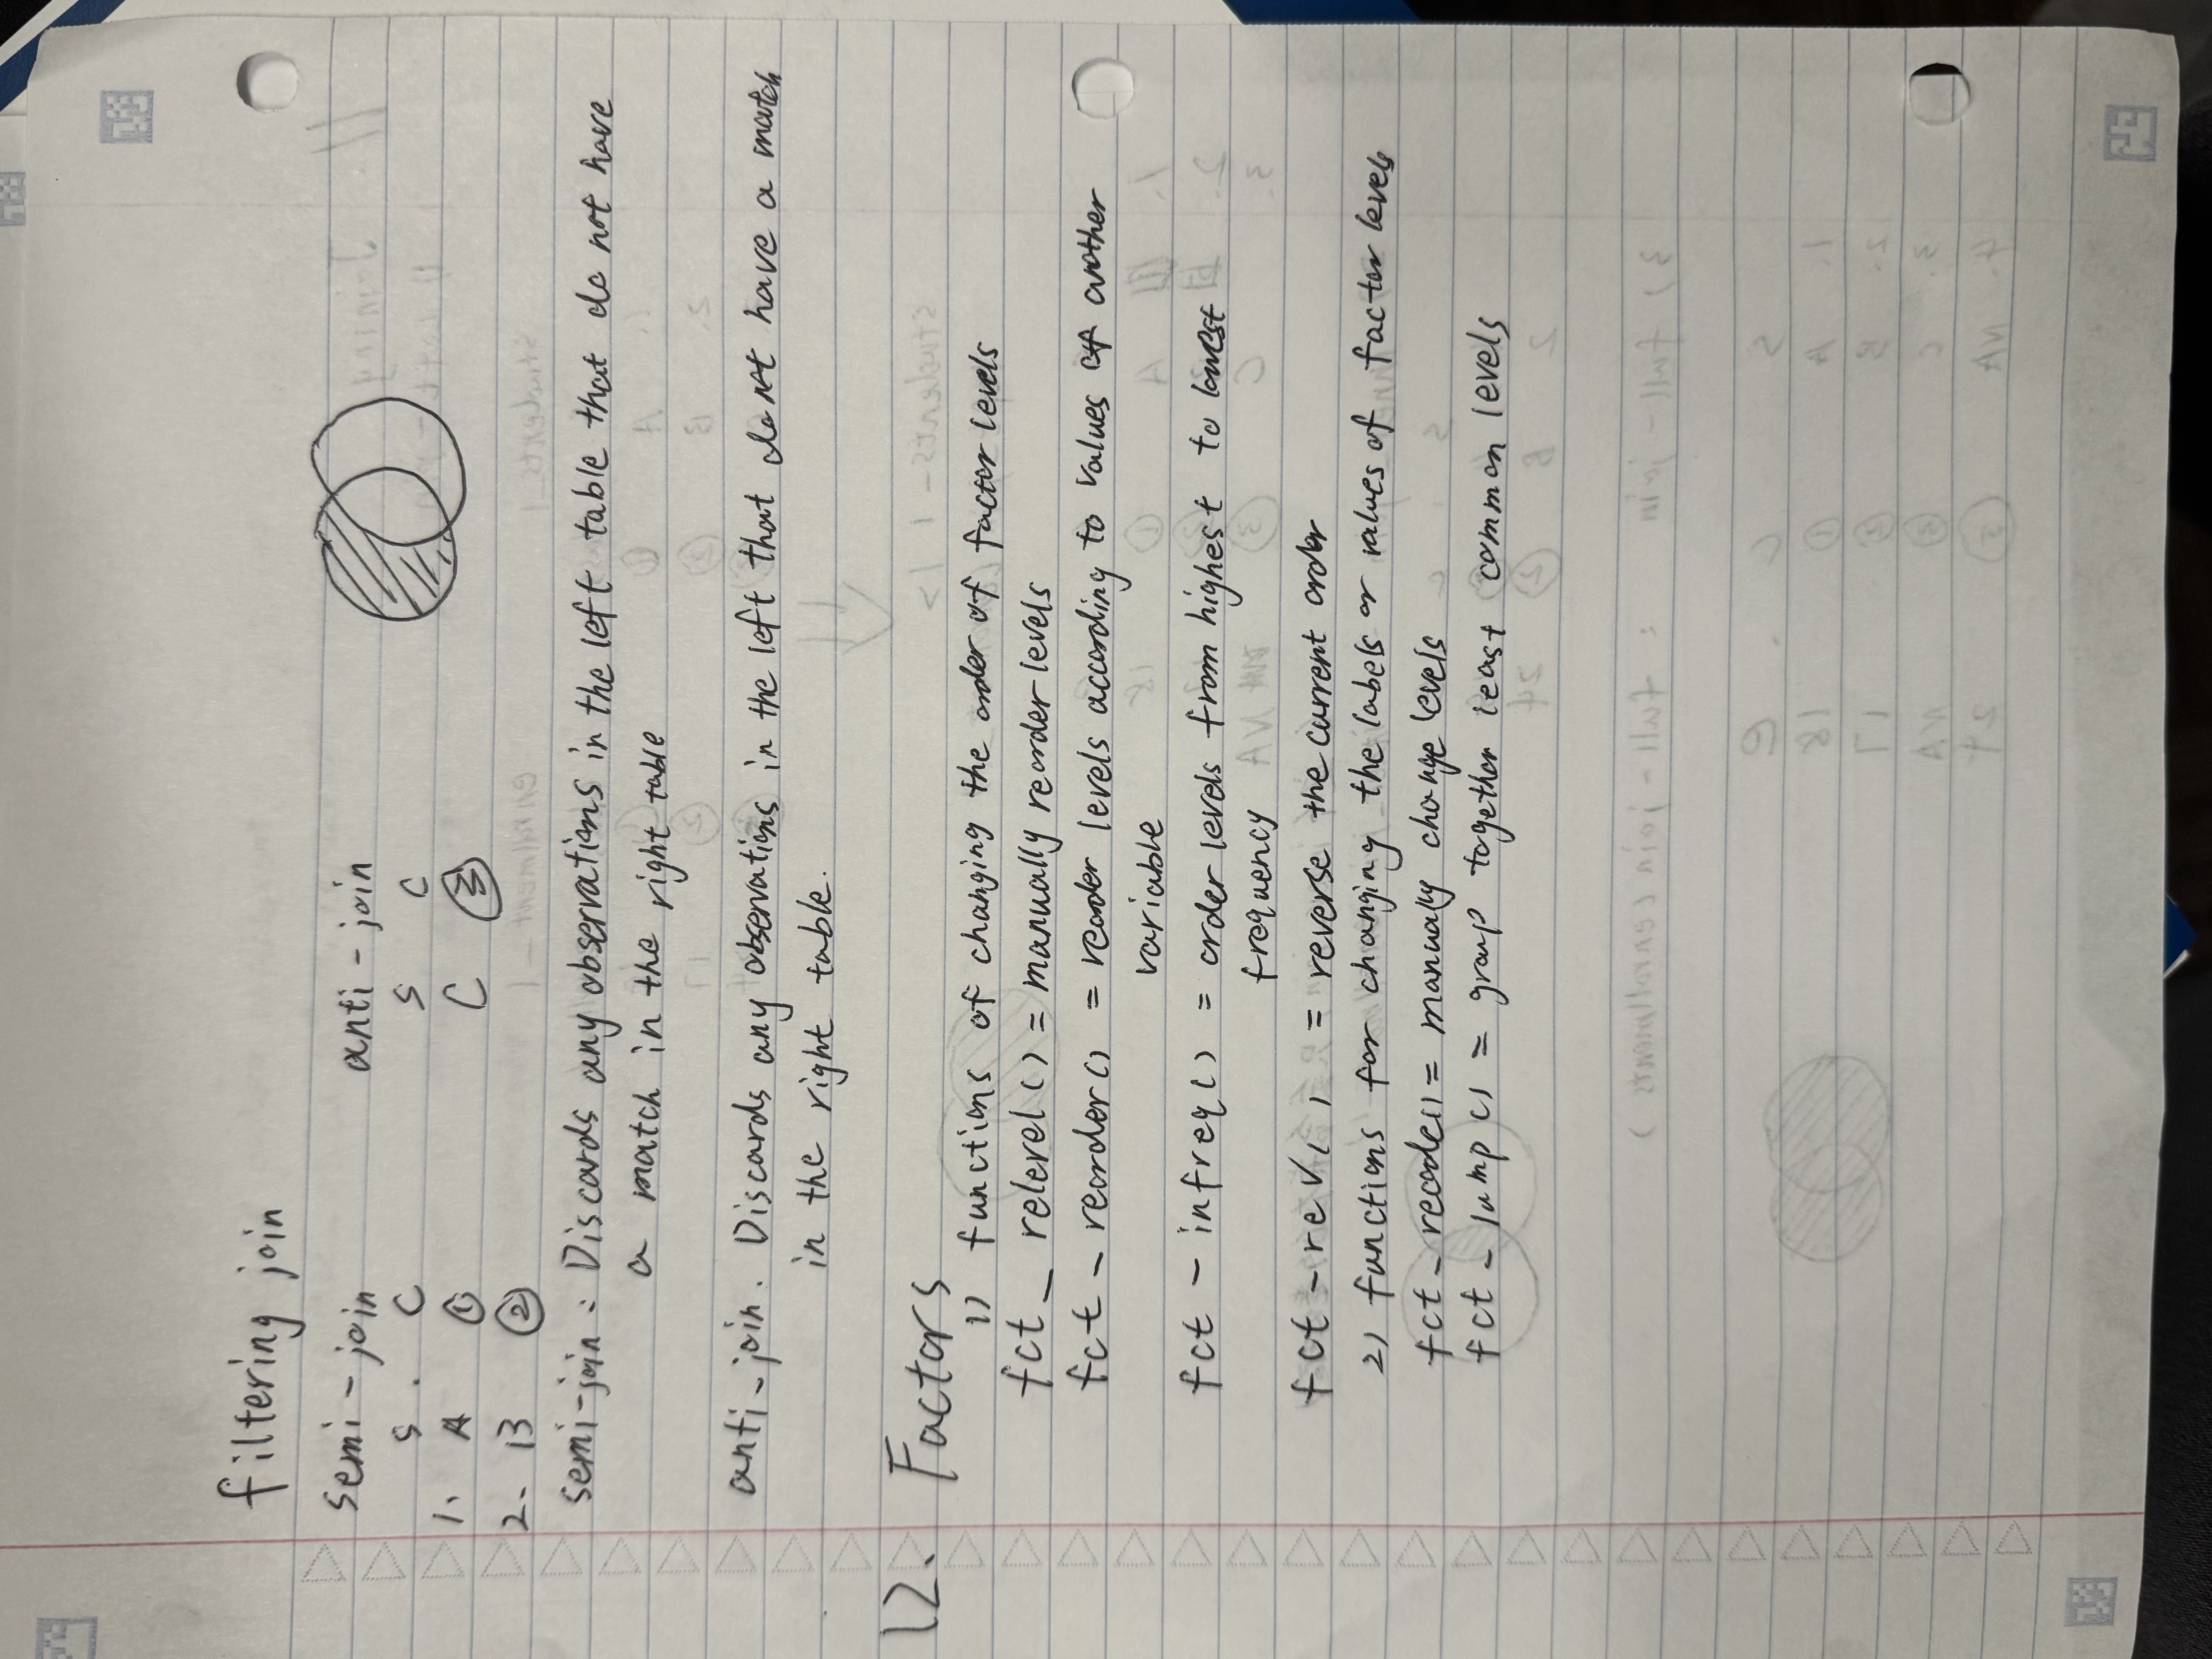 filtering join
semi-join anti-join
S. C S C
1. A ① C ③
2. B ②
semi-join: Discards any observations in the left table that do not have
a match in the right table
anti-join. Discards any observations in the left that do not have a match
in the right table.
12. Factors
1) functions of changing the order of factor levels
fct_relevel() = manually reorder levels
fct-reorder() = reorder levels according to values of another
variable
fct-infreq() = order levels from highest to lowest
frequency
fct-rev() = reverse the current order
2) functions for changing the labels or values of factor levels
fct_recode() = manually change levels
fct-lump() = group together least common levels